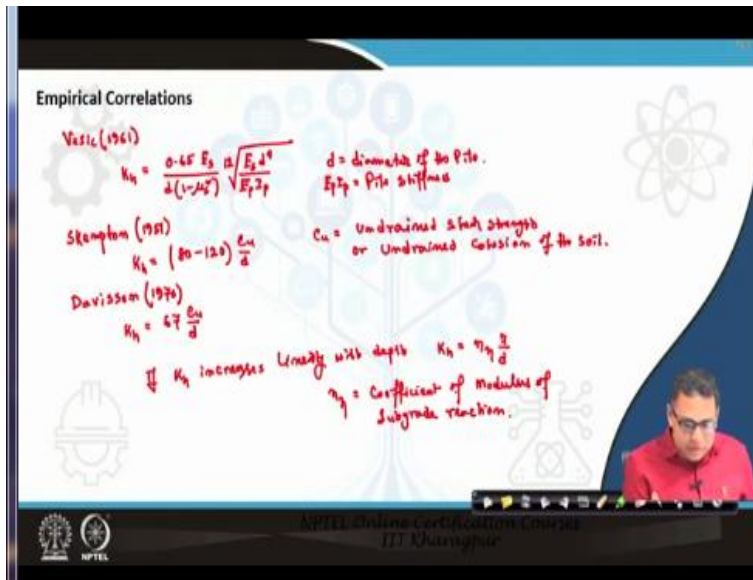 Empirical Correlations
Vesic (1961)
K_h = \frac{0.65 E_s}{d(1-\mu_s^2)} \sqrt[12]{\frac{E_s d^4}{E_p I_p}}
d = diameter of the Pile.
E_p I_p = Pile stiffness
Skempton (1951)
K_h = (80-120) \frac{C_u}{d}
C_u = Undrained shear strength
or Undrained Cohesion of the soil.
Davisson (1970)
K_h = 67 \frac{C_u}{d}
If K_h increases linearly with depth K_h = η_h \frac{z}{d}
η_h = Coefficient of modulus of
Subgrade reaction.
NPTEL Online Certification Courses
IIT Kharagpur
NPTEL